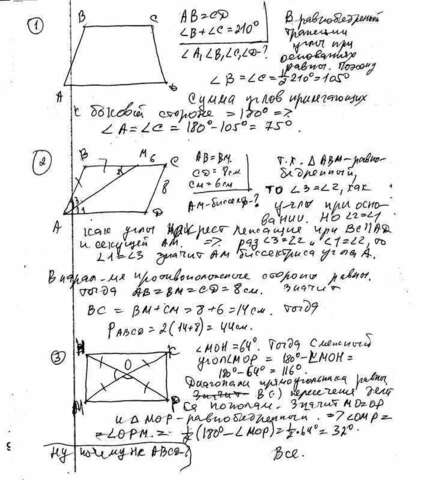 1
B C
A D
AB = CD
∠B+∠C=210°
∠A, ∠B, ∠C, ∠D-?
В равнобедренной
трапеции
углы при
основаниях
равны. Поэтому
∠B = ∠C = 1/2 210° = 105°
Сумма углов прилегающих
к боковой стороне = 180° =>
∠A = ∠C = 180° - 105° = 75°.
2
B 7 M 6 C
8
3
A D
AB = BM
CD = 8см
CM = 6см
AM-биссек-?
Т.к. △ABM-равно-
бедренный,
то ∠3=∠2, как
углы при осно-
вании. Но ∠2=∠1
как углы накрест лежащие при BC∥AD
и секущей AM. => раз ∠3=∠2 и ∠1=∠2, то
∠1=∠3 значит AM биссектриса угла A.
В паралл-ме противоположные стороны равны.
тогда AB = BM = CD = 8см. Значит
BC = BM + CM = 8+6 = 14см. тогда
P ABCD = 2(14+8) = 44см.
3
K
O
M P
∠MOH = 64°. Тогда смежный
угол MOP = 180° - ∠MOH =
180° - 64° = 116°.
Диагонали прямоугольника равны
Значит В(·) пересечения делятся
пополам. Значит MO=OP
и △ MOP-равнобедренный. => ∠OMP =
= ∠OPM = 1/2(180° - ∠MOP) = 1/2·64° = 32°.
Ну почему не ABCD?
Все.